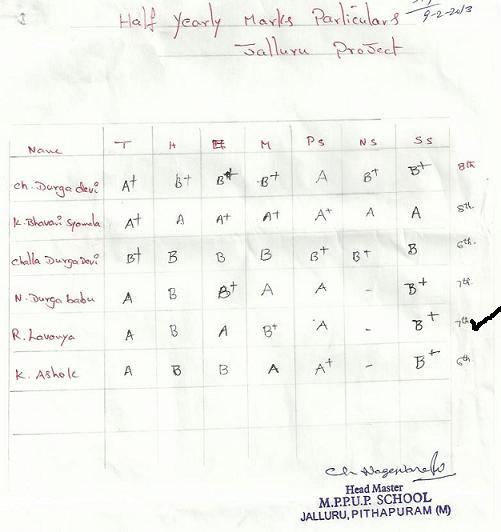 Half Yearly Marks Particulars
9-2-2013
Jalluru Project
Name T H E M PS NS SS
Ch. Durga devi A+ B+ B+ B+ A B+ B+ 8th
K. Bhavani Syamala A+ A A+ A+ A+ A A 8th
Challa Durga Devi B+ B B B B+ B+ B 6th
N. Durga babu A B B+ A A - B+ 7th
R. Lavanya A B A B+ A - B+ 7th
K. Ashok A B B A A+ - B+ 6th
Ch Nageswara Rao
Head Master
M.P.P.U.P. SCHOOL
JALLURU, PITHAPURAM (M)